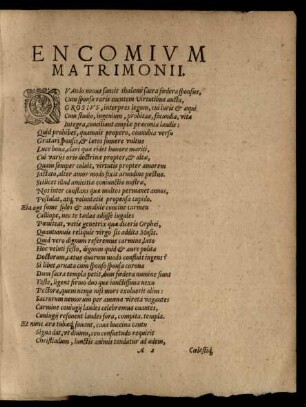 ENCOMIVM
MATRIMONII.
QVando nouus sancit thalami sacra fœdera sponsus,
Cum sponsa raris mentem virtutibus aucta,
GROSIVS, interpres legum, cui iuris & æqui
Cum studio, ingenium, probitas, fœcundia, vita
Integra, conciliant ampla præconia laudis:
Quid prohibet, quamuis propero, connubia versu
Gratari sponsis, & lætos iungere vultus
Luce boua, clari que eidet honore mariti,
Cui varijs artis doctrina propter, & alta,
Quam semper colait, virtutis propter amorem
Iactato, alter amor modo fixit arundine pectus.
Scilicet istud amicitiæ coniunctio nostræ,
Nos inter constans que multos permanet annos,
Postulat, atq; voluntatis proposta tapeda,
Eia age summe soles & amabile concine carmen
Calliope, nec te tædas adijsse iugales
Pœniteat, vatis genetrix quæ diceris Orphei,
Quantumuis reliquis virgo sis addita Musis.
Quid vero dignum referemus carmine læto
Hoc veluti festo, dignum quid & aure polita
Doctorum, cœtus quorum modò constitit ingens?
Si libet, ornata cum sponso sponsa corona
Dum sacra templa petit, dum fœdera numine sancti
Teste, ligent firmo duo que iunctissima nexu
Pectora, quem nemo nisi mors exoluerit olim:
Sacrorum nemorum per amœna vireta vagantes
Carmine coniugij laudes celebremus ouantes,
Coniugij referent laudes fora, compita, templa.
Et nunc æra tubæq; sonent, cauæ buccina cantu
Signa det, vt diuum, ceu consuetudo requirit
Christiadum, iunctis animis tendatur ad ædem,
A 2 Cælestiq;